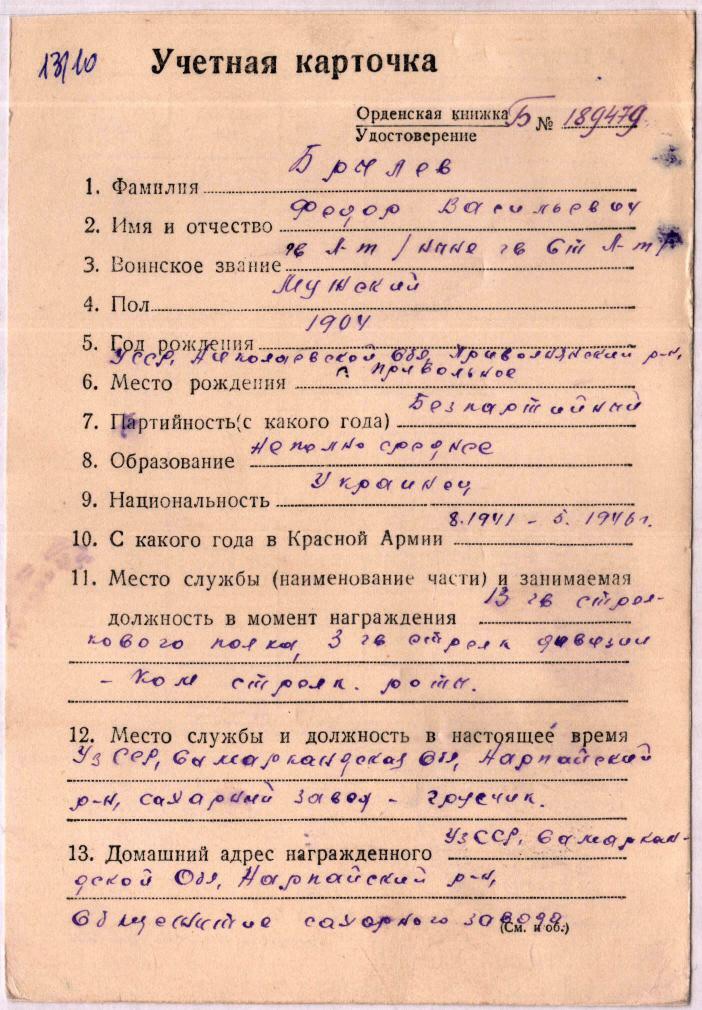 13/10
Учетная карточка
Орденская книжка Б № 189479
Удостоверение
1. Фамилия Брилев
2. Имя и отчество Федор Васильевич
3. Воинское звание гв Л-т / ныне гв Ст Л-т/
4. Пол Мужской
5. Год рождения 1904
УССР, Николаевской Обл, Привольнянский р-н,
6. Место рождения с Привольное
7. Партийность(с какого года) Безпартийный
8. Образование Неполно среднее
9. Национальность Украинец
10. С какого года в Красной Армии 8.1941 - 5. 1946 г.
11. Место службы (наименование части) и занимаемая
должность в момент награждения 13 гв стрел-
кового полка, 3 гв стрелк дивизии
- Ком стрелк. роты.
12. Место службы и должность в настоящее время
УзССР, Самаркандская Обл, Нарпайский
р-н, сахарный завод - грузчик.
13. Домашний адрес награжденного УзССР, Самаркан-
дской Обл, Нарпайский р-н,
Общежитие сахарного завода
(См. и об.)